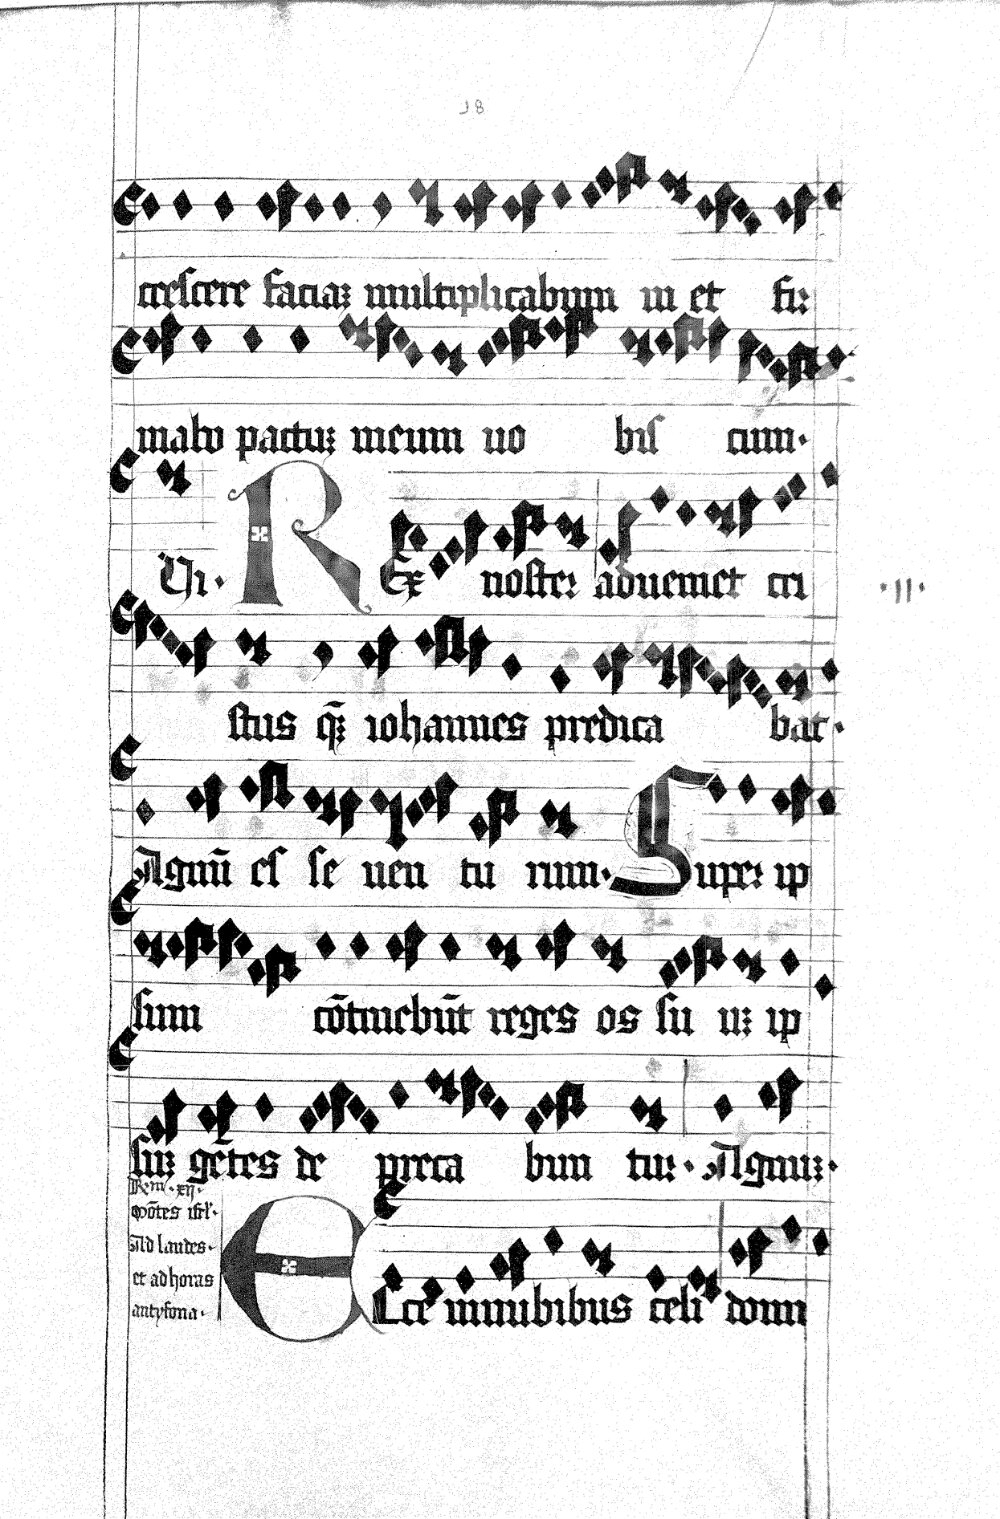 18
crescere faciaꝫ multiplicabimini et fir
mabo pactuꝫ meum uo bis cum·
Vi· Rex noster adueniet cri ·II·
stus q̄ꝫ iohannes predica bat·
Agnū es se uen tu rum· Super ip
sum cōtinebūt reges os su uꝫ ip
suꝫ gētes de preca bun tur· Agnuꝫ·
R̄m·xij·
mōtes isrl'·
Ad laudes·
et ad horas
antyfona·
Ecce in nubibus celi domi